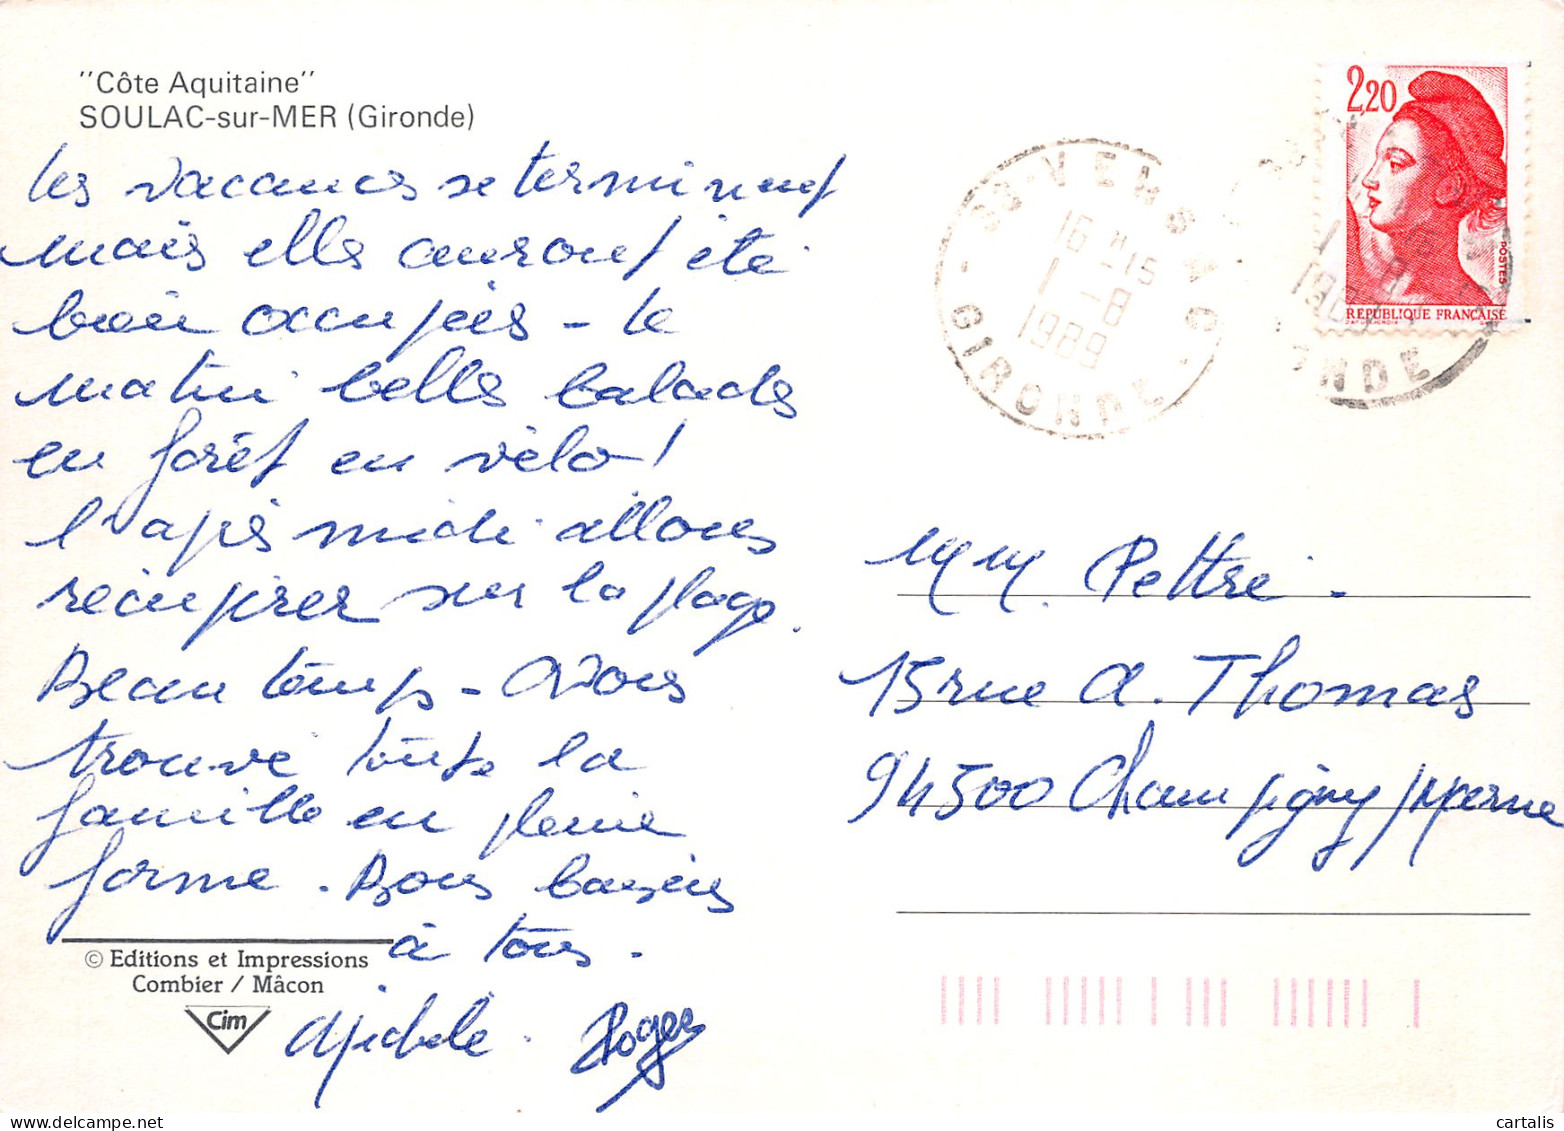 "Côte Aquitaine"
SOULAC-sur-MER (Gironde)
Les vacances se terminent
mais elles auront été
bien occupées - le
matin belles balades
en forêt en vélo !
l'après midi allons
récupérer sur la plage.
Beau temps - Avons
trouvé toute la
famille en pleine
forme. Bons baisers
à tous.
Michèle. Roger
© Editions et Impressions
Combier / Mâcon
Cim
2,20
POSTES
REPUBLIQUE FRANÇAISE
33-VENSAC
16 H 15
1 - 8
1989
- GIRONDE -
M M. Pettré.
15 rue A. Thomas
94500 Champigny/Marne
cartalis